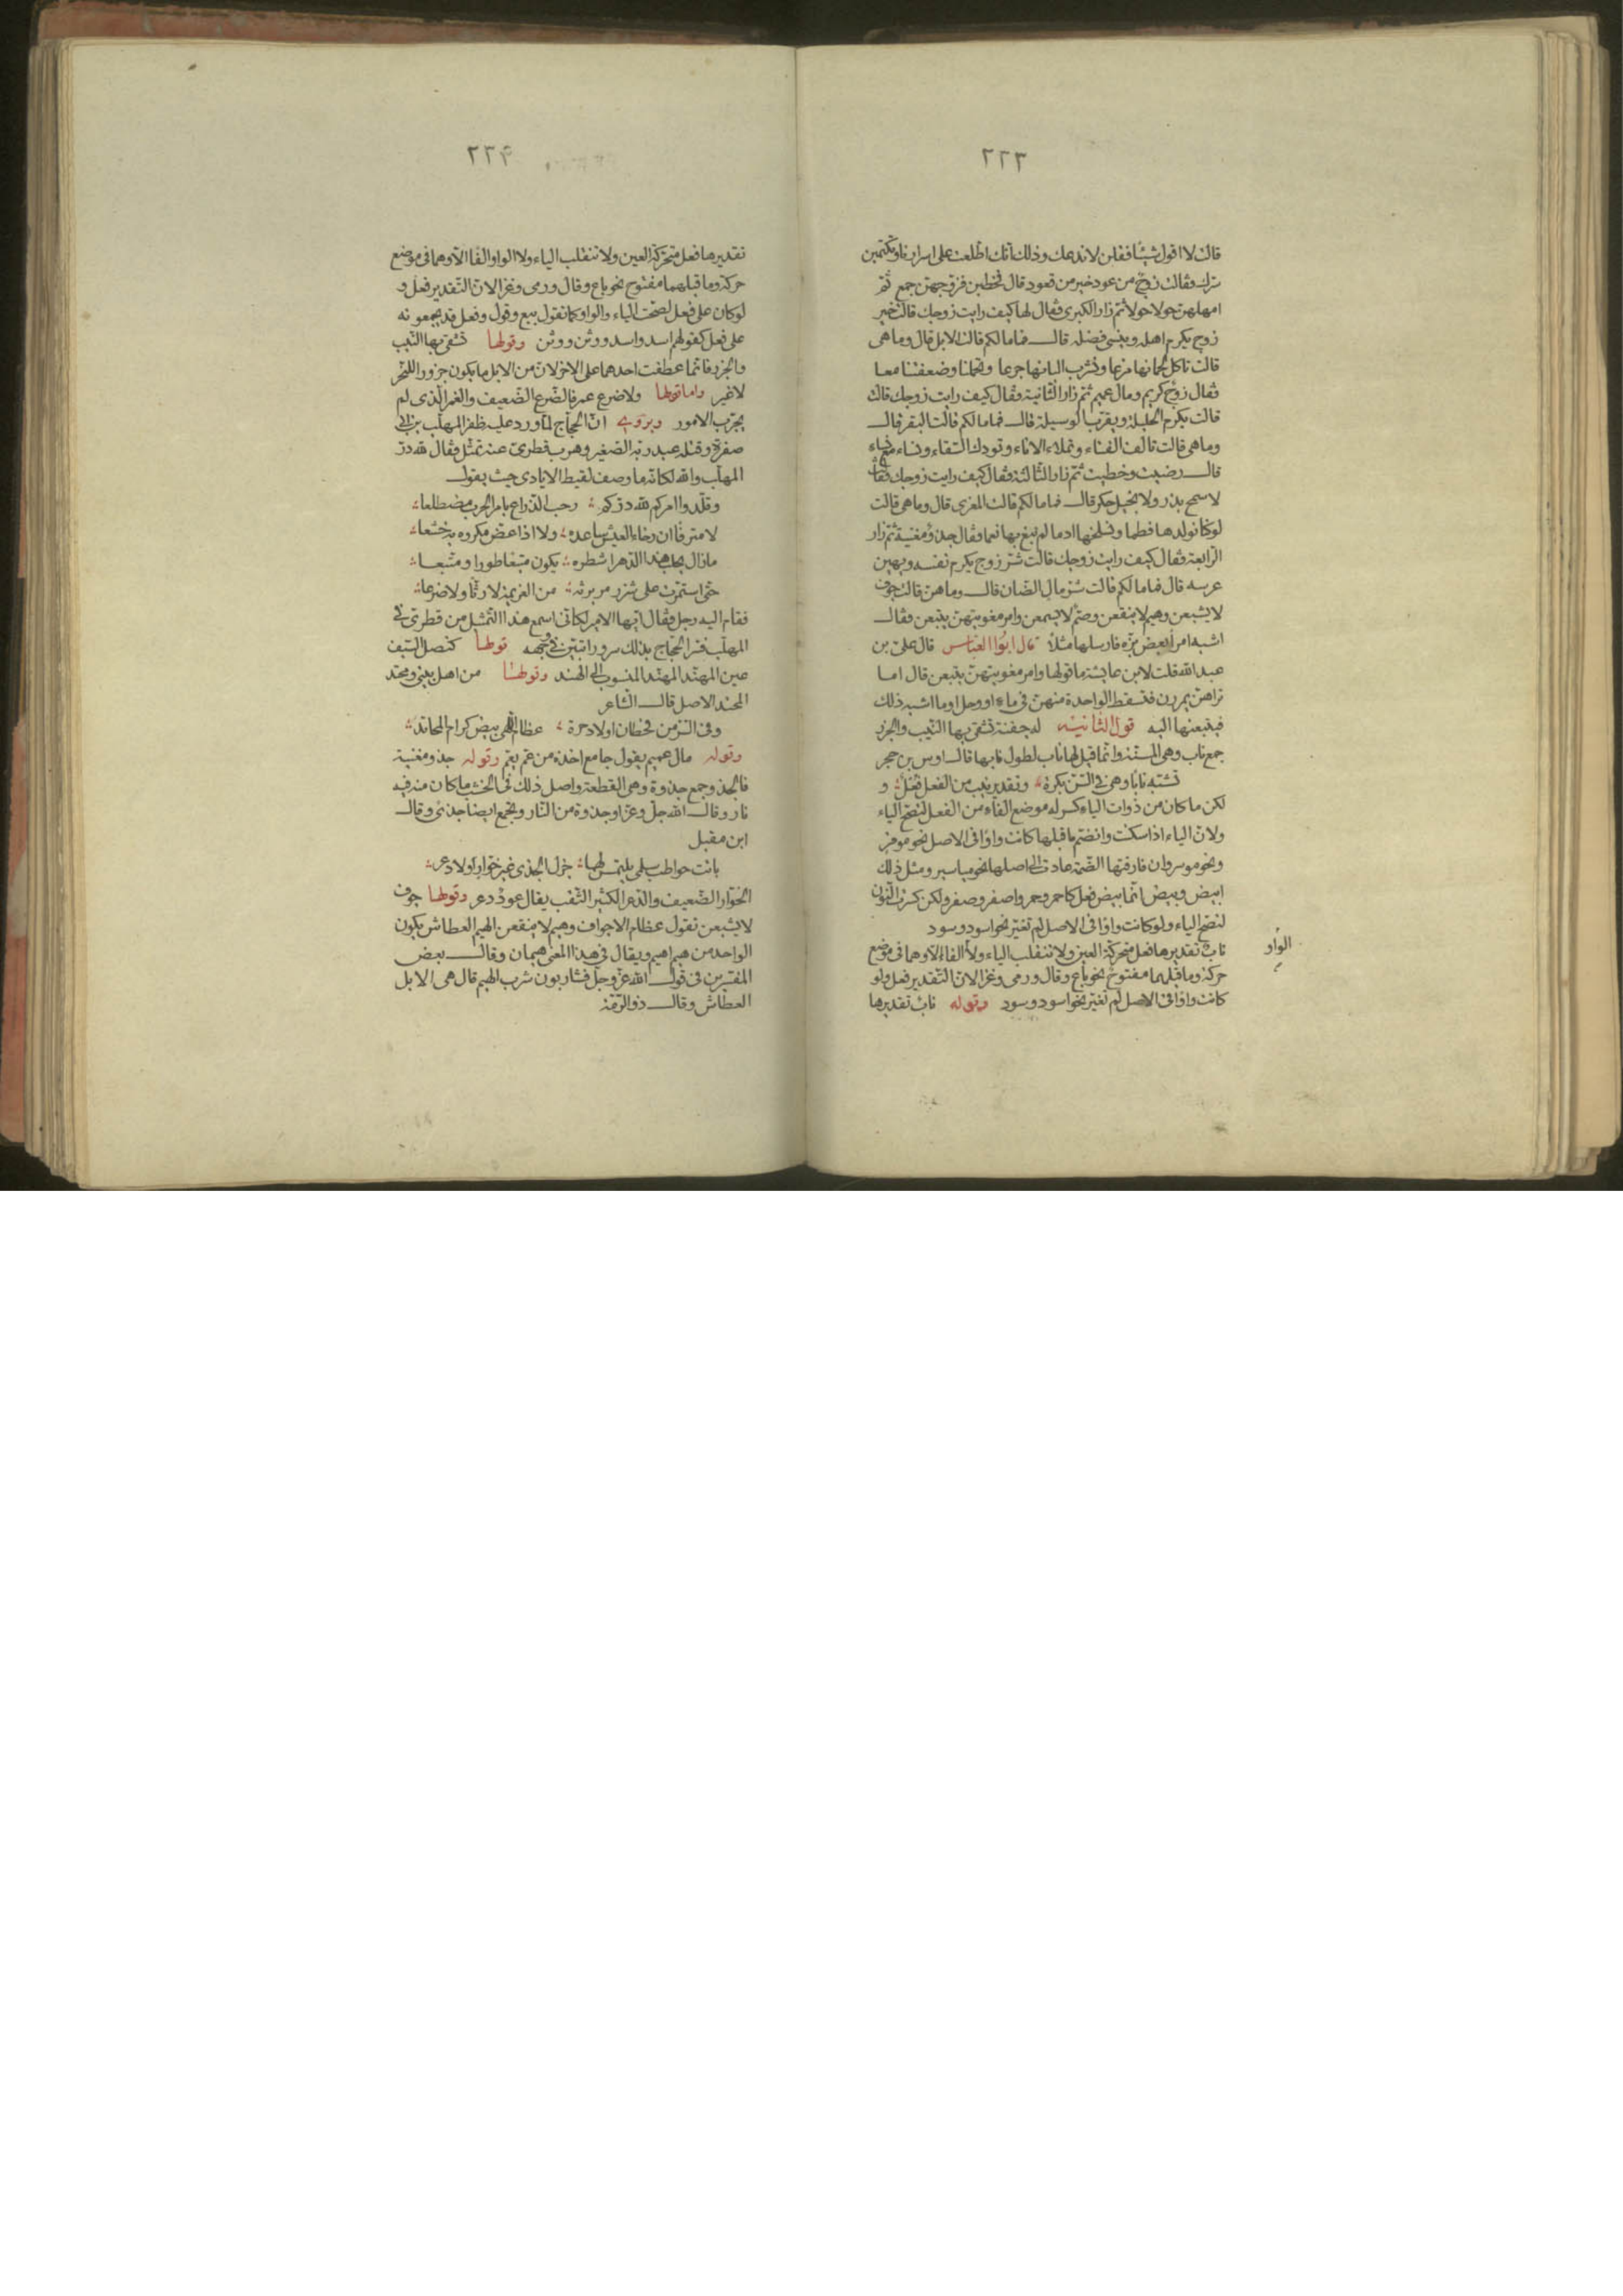 ٢٢٣
قالت لا اقول شيئا فقلن لا ندعك وذلك انك اطلعت على اسرارنا وتكتمين
سرك فقالت زوج من عود خير من قعود قال فخطبن فزوجهن جمع ثم
امهلهن حولا حولا ثم زار الكبرى فقال لها كيف رايت زوجك قالت خير
زوج يكرم اهله وينسى فضله قال فما مالكم قالت الابل قال وما هى
قالت ناكل لحمانها مزعا ونشرب البانها جرعا وتحملنا وضعفتنا معا
فقال زوج كريم ومال عميم ثم زار الثانية فقال كيف رايت زوجك قالت
قالت يكرم الحليلة ويقرب الوسيلة قال فما مالكم قالت البقر قال
وما هى قالت تالف الفناء وتملاء الاناء وتودك السقاء ونساء مع نساء
قال رضيت وحظيت ثم زار الثالثة فقال كيف رايت زوجك فقالت
لا سمح بذر ولا بخيل حكر قال فما مالكم قالت المعزى قال وما هى قالت
لو كنا نولدها فطما ونسلخها ادما لم نبغ بها نعما فقال جذو مغنية ثم زار
الرابعة فقال كيف رايت زوجك قالت شر زوج يكرم نفسه ويهين
عرسه قال فما مالكم قالت شر مال الضان قال وما هن قالت جوف
لا يشبعن وهيم لا ينقعن وصم لا يسمعن وامر مغويتهن يتبعن فقال
اشبه امرأ بعض بزه فارسلها مثلا قال ابوا العباس قال على بن
عبد الله قلت لابن عايشة ما قولها وامر مغويتهن يتبعن قال اما
تراهن يمررن فتسقط الواحدة منهن فى ماء او وحل او ما اشبه ذلك
فيتبعنها اليه قول الثانية له جفنة تشقى بها النيب والجزر
جمع ناب وهى المسنة وانما قيل لها ناب لطول نابها قال اوس بن حجر
تشبه نابا وهى فى السن بكرة وتقدير نيب من الفعل فعل و
لكن ما كان من ذوات الياء كسر له موضع الفاء من الفعل لتصح الياء
ولان الياء اذا سكنت وانضم ما قبلها كانت واوا فى الاصل نحو موقن
ونحو موسر وان فارقتها الضمة عادت الى اصلها نحو مياسير ومثل ذلك
ابيض وبيض انما بيض فعل كاحمر وحمر واصفر وصفر ولكن كسرت النون
لتصح الياء ولو كانت واوا فى الاصل لم تغير نحو اسود وسود
ناب تقديرها فعل متحركة العين ولا تنقلب الياء ولا الفا الا وهما فى موضع
الواو
حركة وما قبلهما مفتوح نحو باع وقال ورمى وغزا لان التقدير فعل ولو
كانت واوا فى الاصل لم تغير نحو اسود وسود وقوله ناب تقديرها
٢٢۴
تقديرها فعل متحركة العين ولا تنقلب الياء ولا الواو الفا الا وهما فى موضع
حركة وما قبلهما مفتوح نحو باع وقال ورمى وغزا لان التقدير فعل و
لو كان على فعل لصحت الياء والواو كما تقول بيع وقول وفعل قد يجمعونه
على فعل كقولهم اسد واسد ووثن ووثن وقولها تشقى بها النيب
والجزر فانما عطفت احدهما على الاخر لان من الابل ما يكون جزورا للنحر
لا غير واما قولها ولا ضرع عمر فالضرع الضعيف والغمر الذى لم
يجرب الامور ويروى ان الحجاج لما ورد عليه ظفر المهلب بن ابى
صفرة وقتله عبد ربه الصغير وهرب قطرى عنه تمثل فقال لله در
المهلب والله لكانه ما وصف لقيط الايادى حيث يقول
وقلدوا امركم لله دركم رحب الذراع بامر الحرب مضطلعا
لا مترفا ان رخاء العيش ساعده ولا اذا عض مكروه به خشعا
ما زال يحلب هذا الدهر اشطره يكون متبعا طورا ومتبعا
حتى استمرت على شزر مريرته من العزيمة لا رثا ولا ضرعا
فقام اليه رجل فقال ايها الامير لكانى اسمع هذا التمثل من قطرى فى
المهلب فسر الحجاج بذلك سرورا تبين فى وجهه قولها كنصل السيف
عين المهند المهند المنسوب الى الهند وقولها من اهل بيتى ومحتد
المحتد الاصل قال الشاعر
وفى السر من قحطان اولاد حرة عظام اللهى بيض كرام المحاتد
وقوله مال عميم يقول جامع اخذه من عم يعم وقوله جذو مغنية
فالجذو جمع جذوة وهى القطعة واصل ذلك فى الخشب ما كان منه فيه
نار وقال الله جل وعز او جذوة من النار ويجمع ايضا جذى وقال
ابن مقبل
باتت حواطب سلمى يلتمسن لها جزل الجذى غير خوار ولا دعر
الخوار الضعيف والدعر الكثير الثقب يقال عود دعر وقولها جوف
لا يشبعن تقول عظام الاجواف وهيم لا ينقعن الهيم العطاش يكون
الواحد من هيم اهيم ويقال فى هذا المعنى هيمان وقال بعض
المفسرين فى قول الله عز وجل فشاربون شرب الهيم قال هى الابل
العطاش وقال ذو الرمة